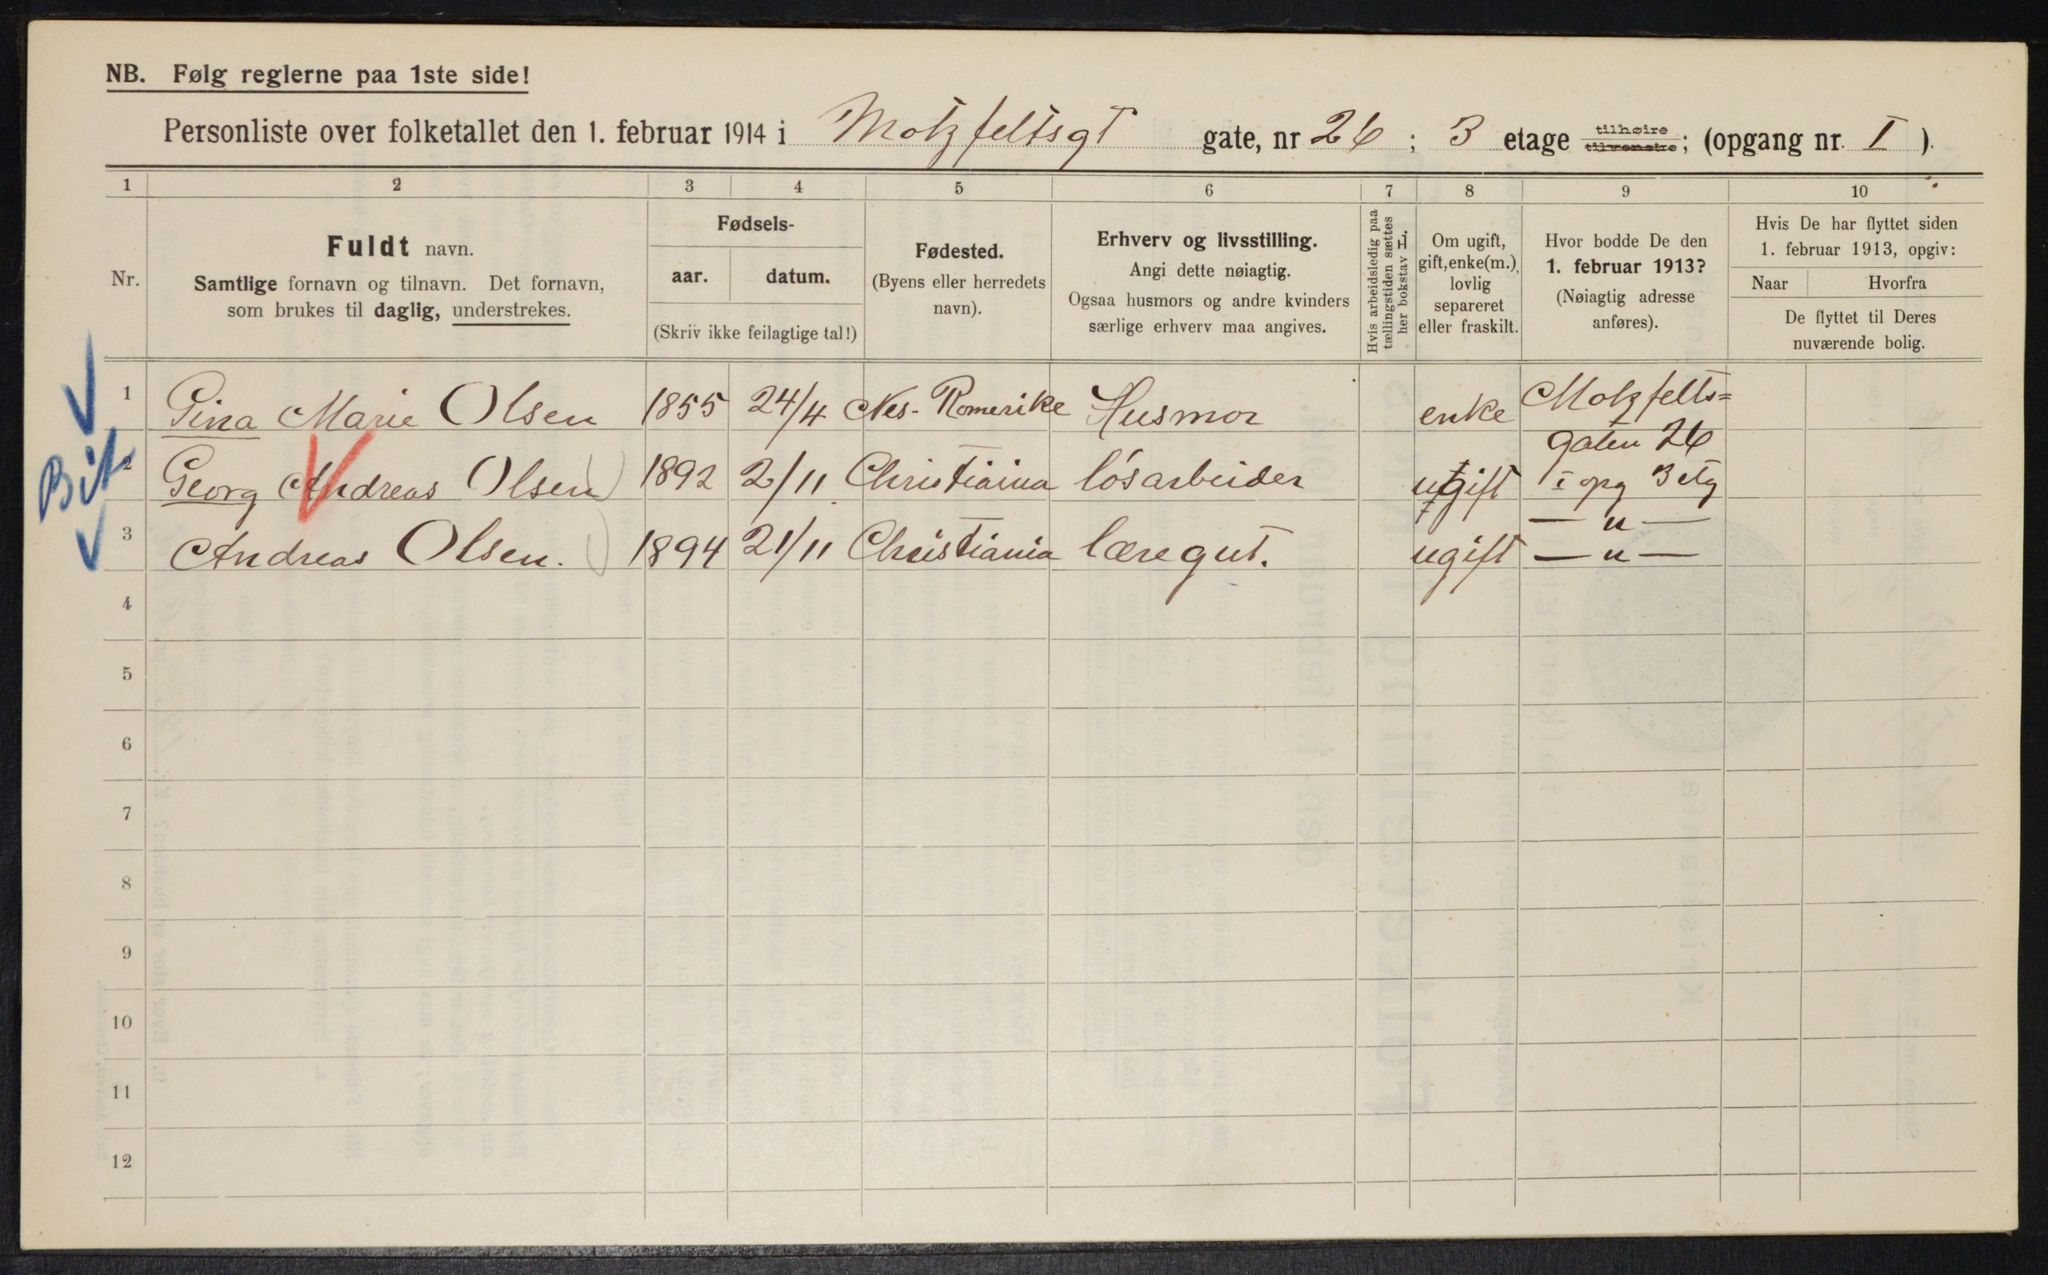 NB. Følg reglerne paa 1ste side!
Personliste over folketallet den 1. februar 1914 i Motzfeltsgt gate, nr 26 ; 3 etage tilhøire tilvenstre; (opgang nr. I ).
1 2 3 4 5 6 7 8 9 10
Nr.
Fuldt navn.
Samtlige fornavn og tilnavn. Det fornavn,
som brukes til daglig, understrekes.
Fødsels-
aar. datum.
(Skriv ikke feilagtige tal!)
Fødested.
(Byens eller herredets
navn).
Erhverv og livsstilling.
Angi dette nøiagtig.
Ogsaa husmors og andre kvinders
særlige erhverv maa angives.
Hvis arbeidsledig paa
tællingstiden sættes
her bokstav L.
Om ugift,
gift, enke(m.),
lovlig
separeret
eller fraskilt.
Hvor bodde De den
1. februar 1913?
(Nøiagtig adresse
anføres).
Hvis De har flyttet siden
1. februar 1913, opgiv:
Naar Hvorfra
De flyttet til Deres
nuværende bolig.
1 Gina Marie Olsen 1855 24/4 Nes-Romerike Husmor enke Motzfelts=
gaten 26
2 Georg Andreas Olsen 1892 2/11 Christiania løsarbeider ugift I opg 3 etg
— „ —
3 Andreas Olsen. 1894 21/11 Christiania læregut. ugift — „ —
4
5
6
7
8
9
10
11
12